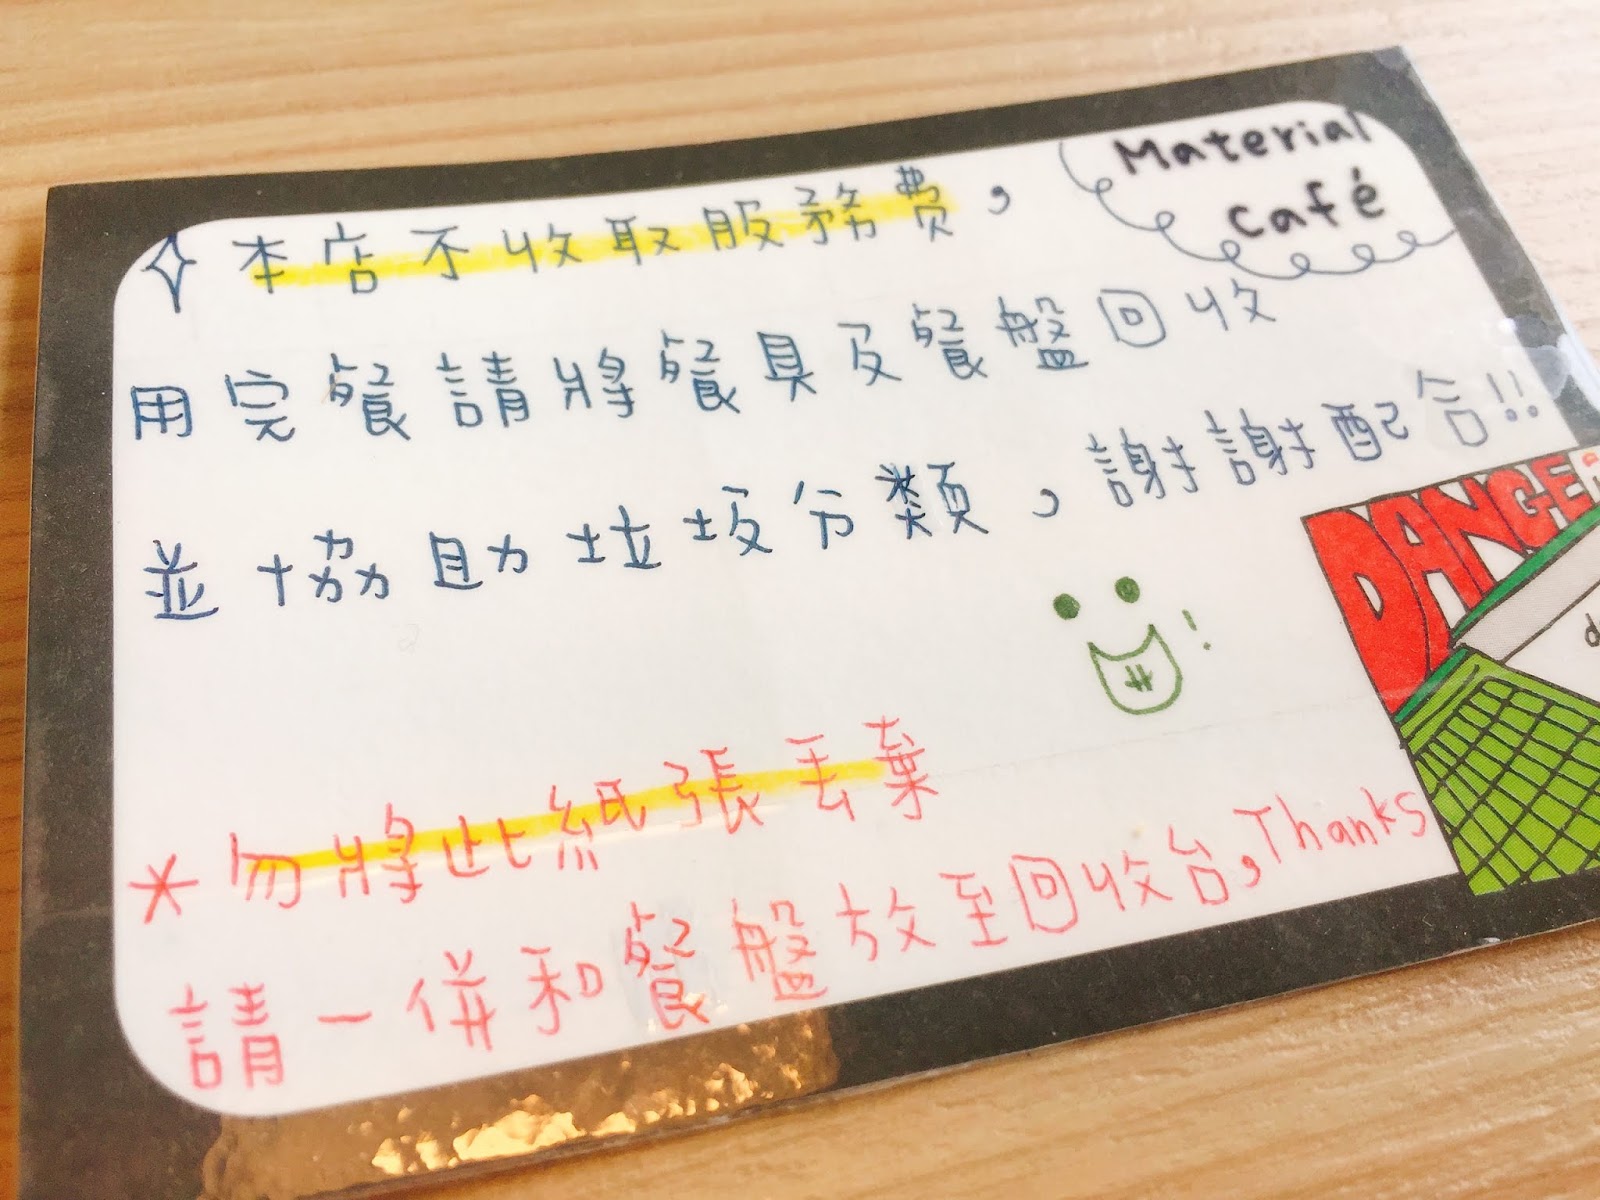 Material
Café
本店不收取服務費，
用完餐請將餐具及餐盤回收
並協助垃圾分類，謝謝配合!!
DANGER
*勿將此紙張丟棄
請一併和餐盤放至回收台,Thanks